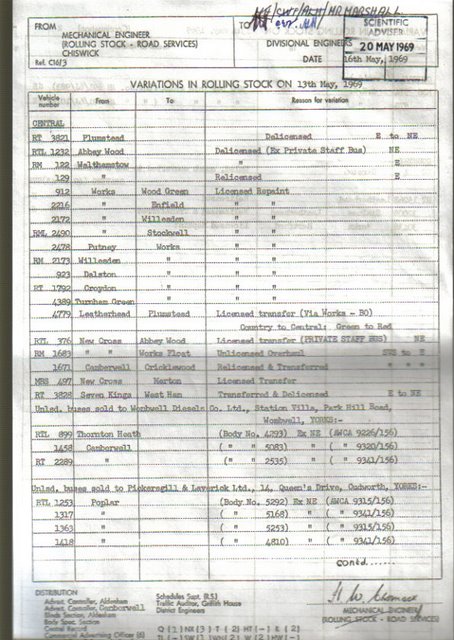 MR MARSHALL
FROM
MECHANICAL ENGINEER
(ROLLING STOCK - ROAD SERVICES)
CHISWICK
Ref. C16/3
TO
DIVISIONAL ENGINEERS
DATE 16th May, 1969
SCIENTIFIC
ADVISER
20 MAY 1969
VARIATIONS IN ROLLING STOCK ON 13th May, 1969
Vehicle number From To Reason for variation
CENTRAL
RT 3821 Plumstead Delicensed E to NE
RTL 1232 Abbey Wood Delicensed (Ex Private Staff Bus) NE
RM 122 Walthamstow " E
129 " Relicensed E
912 Works Wood Green Licensed Repaint
2216 " Enfield " "
2172 " Willesden " "
RML 2490 " Stockwell " "
2478 Putney Works " "
RM 2173 Willesden " " "
923 Dalston " " "
RT 1792 Croydon " " "
4389 Turnham Green " " "
4779 Leatherhead Plumstead Licensed transfer (Via Works - BO)
Country to Central: Green to Red
RTL 376 New Cross Abbey Wood Licensed transfer (PRIVATE STAFF BUS) NE
RM 1683 " " Works Float Unlicensed Overhaul SWS to E
1671 Camberwell Cricklewood Relicensed & Transferred " " "
MBS 497 New Cross Merton Licensed Transfer
RT 3828 Seven Kings West Ham Transferred & Delicensed E to NE
Unlsd. buses sold to Wombwell Diesels Co. Ltd., Station Villa, Park Hill Road,
Wombwell, YORKS:-
RTL 899 Thornton Heath (Body No. 4293) Ex NE (AWCA 9226/156)
1458 Camberwell ( " " 5083) " ( " 9320/156)
RT 2289 " ( " " 2535) " ( " 9341/156)
Unlsd. buses sold to Pickersgill & Laverick Ltd., 14, Queen's Drive, Cudworth, YORKS:-
RTL 1253 Poplar (Body No. 5292) Ex NE (AWCA 9315/156)
1317 " ( " " 5168) " ( " 9341/156)
1363 " ( " " 5253) " ( " 9315/156)
1418 " ( " " 4810) " ( " 9341/156)
contd.......
DISTRIBUTION
Advert. Controller, Aldenham
Advert. Controller, Camberwell
Blinds Section, Aldenham
Body Spec. Section
Central Record
Commercial Advertising Officer (6)
Schedules Supt. (R.S.)
Traffic Auditor, Griffith House
District Engineers
MECHANICAL ENGINEER
(ROLLING STOCK - ROAD SERVICES)